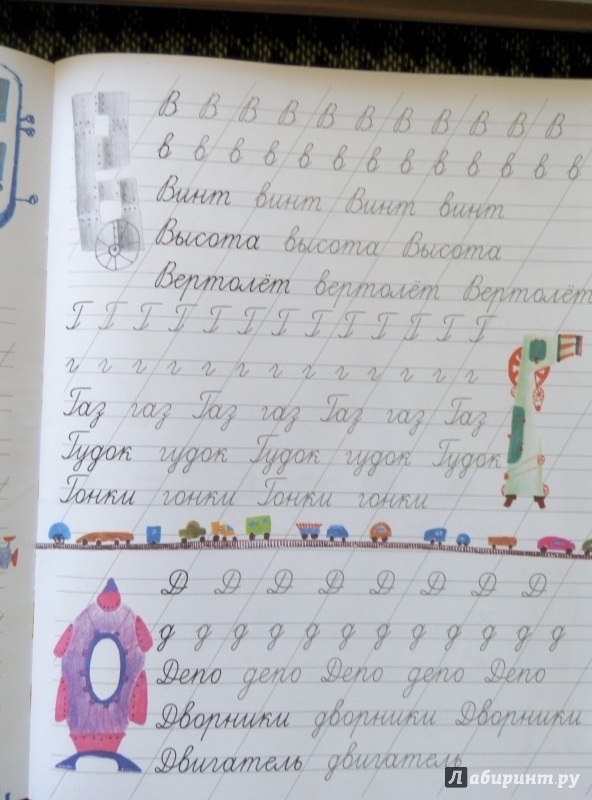 В В В В В В В В В В В
в в в в в в в в в в в в в
Винт винт Винт винт
Высота высота Высота
Вертолёт вертолёт Вертолёт
Г Г Г Г Г Г Г Г Г Г Г Г Г
г г г г г г г г г г г г г
Газ газ Газ газ Газ газ Газ
Гудок гудок Гудок гудок Гудок
Гонки гонки Гонки гонки
Д Д Д Д Д Д Д Д
д д д д д д д д д д д д
Депо депо Депо депо Депо
Дворники дворники Дворники
Двигатель двигатель
Лабиринт.ру